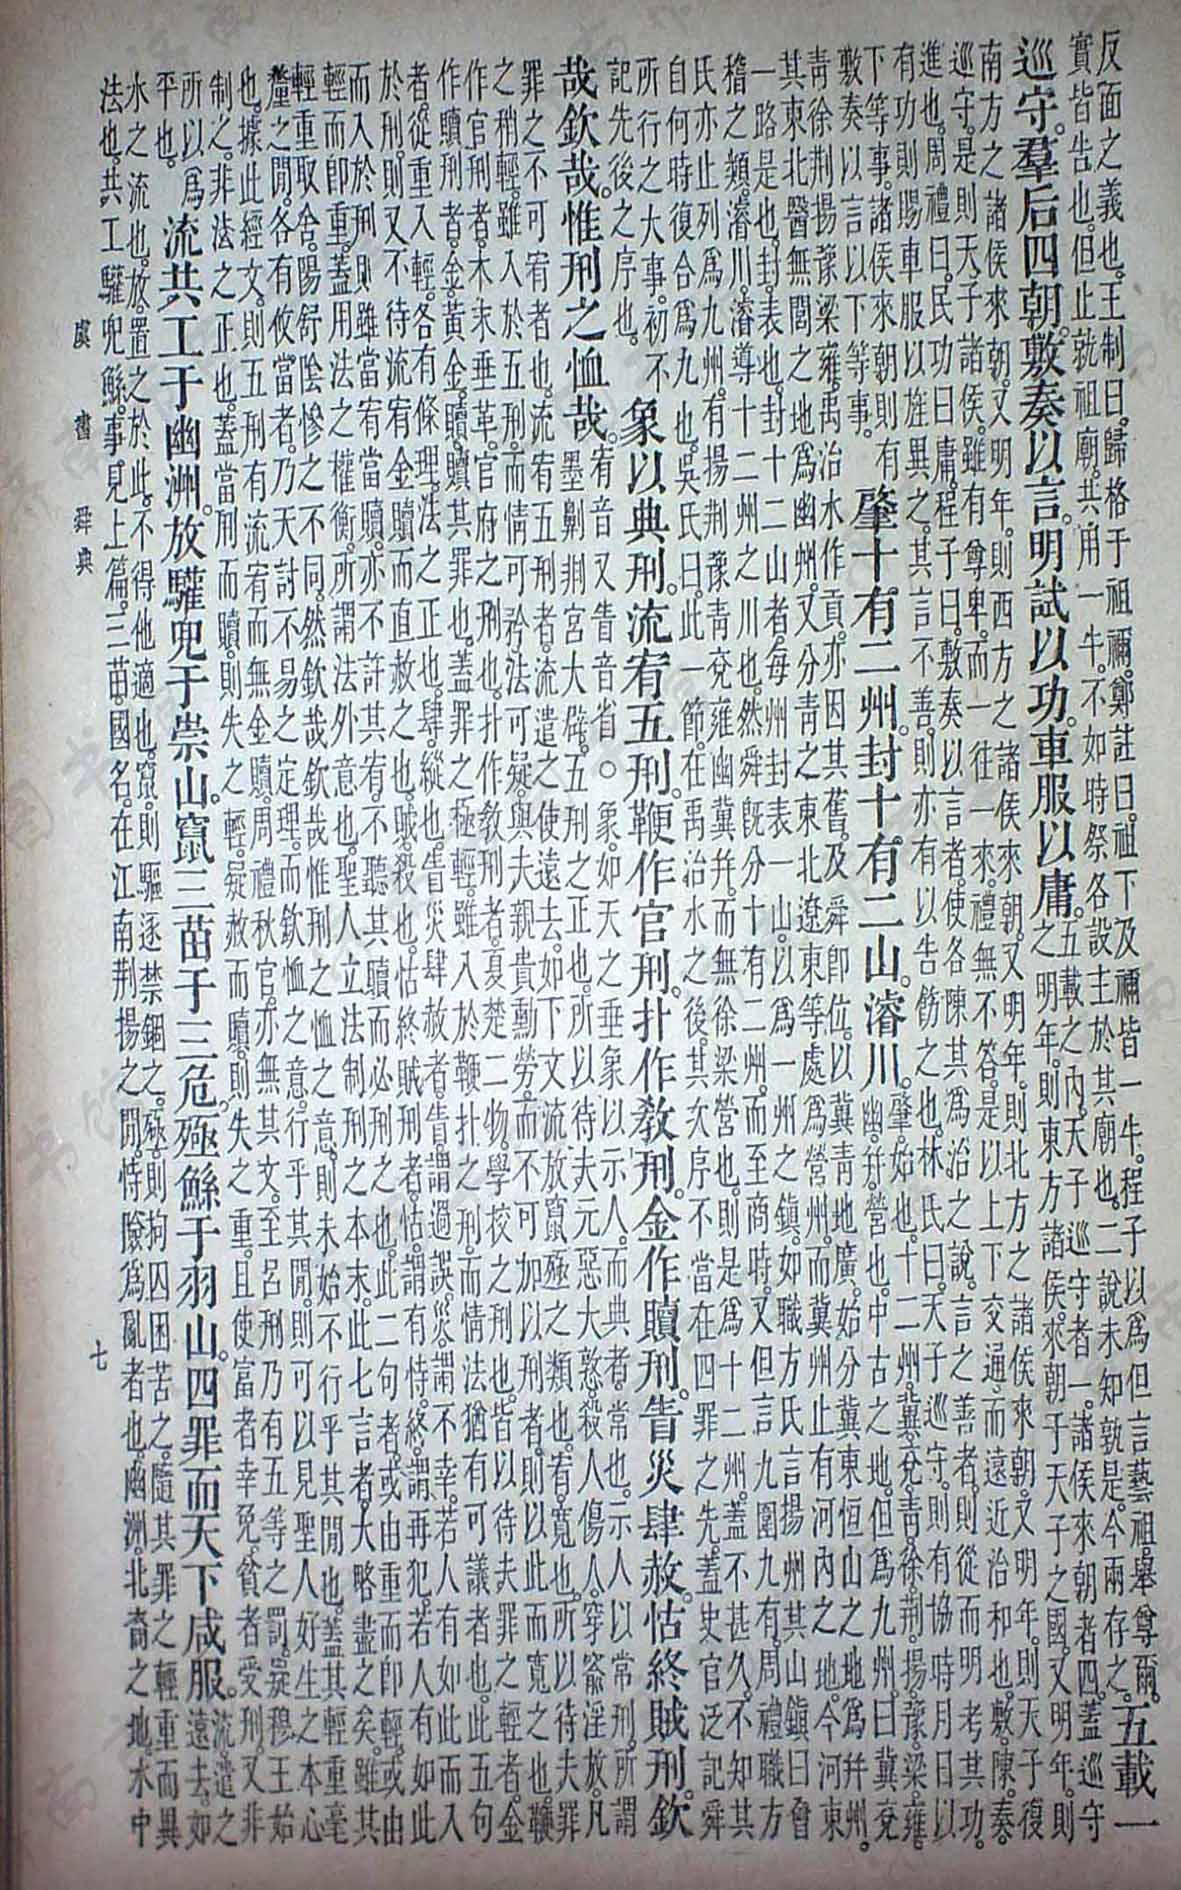 反面之義也。王制曰。歸格于祖禰。鄭註曰。祖下及禰皆一牛。程子以爲但言藝祖。舉尊爾。
實皆告也。但止就祖廟。共用一牛。不如時祭。各設主於其廟也。二說未知孰是。今兩存之。
五載一
巡守。羣后四朝。敷奏以言。明試以功。車服以庸。
五載之內。天子巡守者一。諸侯來朝者四。蓋巡守
之明年。則東方諸侯。來朝于天子之國。又明年。則
南方之諸侯來朝。又明年。則西方之諸侯來朝。又明年。則北方之諸侯來朝。又明年。則天子復
巡守。是則天子諸侯。雖有尊卑。而一往一來。禮無不答。是以上下交通。而遠近洽和也。敷。陳。奏。
進也。周禮曰。民功曰庸。程子曰。敷奏以言者。使各陳其爲治之說。言之善者。則從而明考其功。
有功則賜車服以旌異之。其言不善。則亦有以告飭之也。林氏曰。天子巡守。則有協時月日以
下等事。諸侯來朝。則有
敷奏以言以下等事。
肇十有二州。封十有二山。濬川。
肇。始也。十二州。冀兗青徐荊揚豫梁雍
幽并營也。中古之地。但爲九州。曰冀兗
青徐荊揚豫梁雍。禹治水作貢。亦因其舊。及舜即位。以冀青地廣。始分冀東恒山之地爲并州。
其東北醫無閭之地爲幽州。又分青之東北遼東等處爲營州。而冀州止有河內之地。今河東
一路是也。封。表也。封十二山者。每州封表一山。以爲一州之鎮。如職方氏言揚州其山鎮曰會
稽之類。濬川。濬導十二州之川也。然舜既分十有二州。而至商時。又但言九圍九有。周禮職方
氏亦止列爲九州。有揚荊豫青兗雍幽冀并。而無徐梁營也。則是爲十二州。蓋不甚久。不知其
自何時復合爲九也。吳氏曰。此一節。在禹治水之後。其次序不當在四罪之先。蓋史官泛記舜
所行之大事。初不
記先後之序也。
象以典刑。流宥五刑。鞭作官刑。扑作教刑。金作贖刑。眚災肆赦。怙終賊刑。欽
哉欽哉。惟刑之恤哉。
宥音又。眚音省。○象。如天之垂象以示人。而典者。常也。示人以常刑。所謂
墨劓剕宮大辟。五刑之正也。所以待夫元惡大憝。殺人傷人。穿窬淫放。凡
罪之不可宥者也。流宥五刑者。流遣之使遠去。如下文流放竄殛之類也。宥。寬也。所以待夫罪
之稍輕。雖入於五刑。而情可矜。法可疑。與夫親貴勳勞。而不可加以刑者。則以此而寬之也。鞭
作官刑者。木末垂革。官府之刑也。扑作教刑者。夏楚二物。學校之刑也。皆以待夫罪之輕者。金
作贖刑者。金。黃金。贖。贖其罪也。蓋罪之極輕。雖入於鞭扑之刑。而情法猶有可議者也。此五句
者。從重入輕。各有條理。法之正也。肆。縱也。眚災肆赦者。眚謂過誤。災謂不幸。若人有如此而入
於刑。則又不待流宥金贖而直赦之也。賊。殺也。怙終賊刑者。怙謂有恃。終謂再犯。若人有如此
而入於刑。則雖當宥當贖。亦不許其宥。不聽其贖。而必刑之也。此二句者。或由重而即輕。或由
輕而即重。蓋用法之權衡。所謂法外意也。聖人立法制刑之本末。此七言者。大略盡之矣。雖其
輕重取舍。陽舒陰慘之不同。然欽哉欽哉惟刑之恤之意。則未始不行乎其間也。蓋其輕重毫
釐之間。各有攸當者。乃天討不易之定理。而欽恤之意。行乎其間。則可以見聖人好生之本心
也。據此經文。則五刑有流宥而無金贖。周禮秋官。亦無其文。至呂刑乃有五等之罰。疑穆王始
制之。非法之正也。蓋當刑而贖。則失之輕。疑赦而贖。則失之重。且使富者幸免。貧者受刑。又非
所以爲
平也。
流共工于幽洲。放驩兜于崇山。竄三苗于三危。殛鯀于羽山。四罪而天下咸服。
流。遣之
遠去。如
水之流也。放。置之於此。不得他適也。竄。則驅逐禁錮之。殛。則拘囚困苦之。隨其罪之輕重而異
法也。共工驩兜鯀。事見上篇。三苗。國名。在江南荊揚之間。恃險爲亂者也。幽洲。北裔之地。水中
虞書 舜典
七